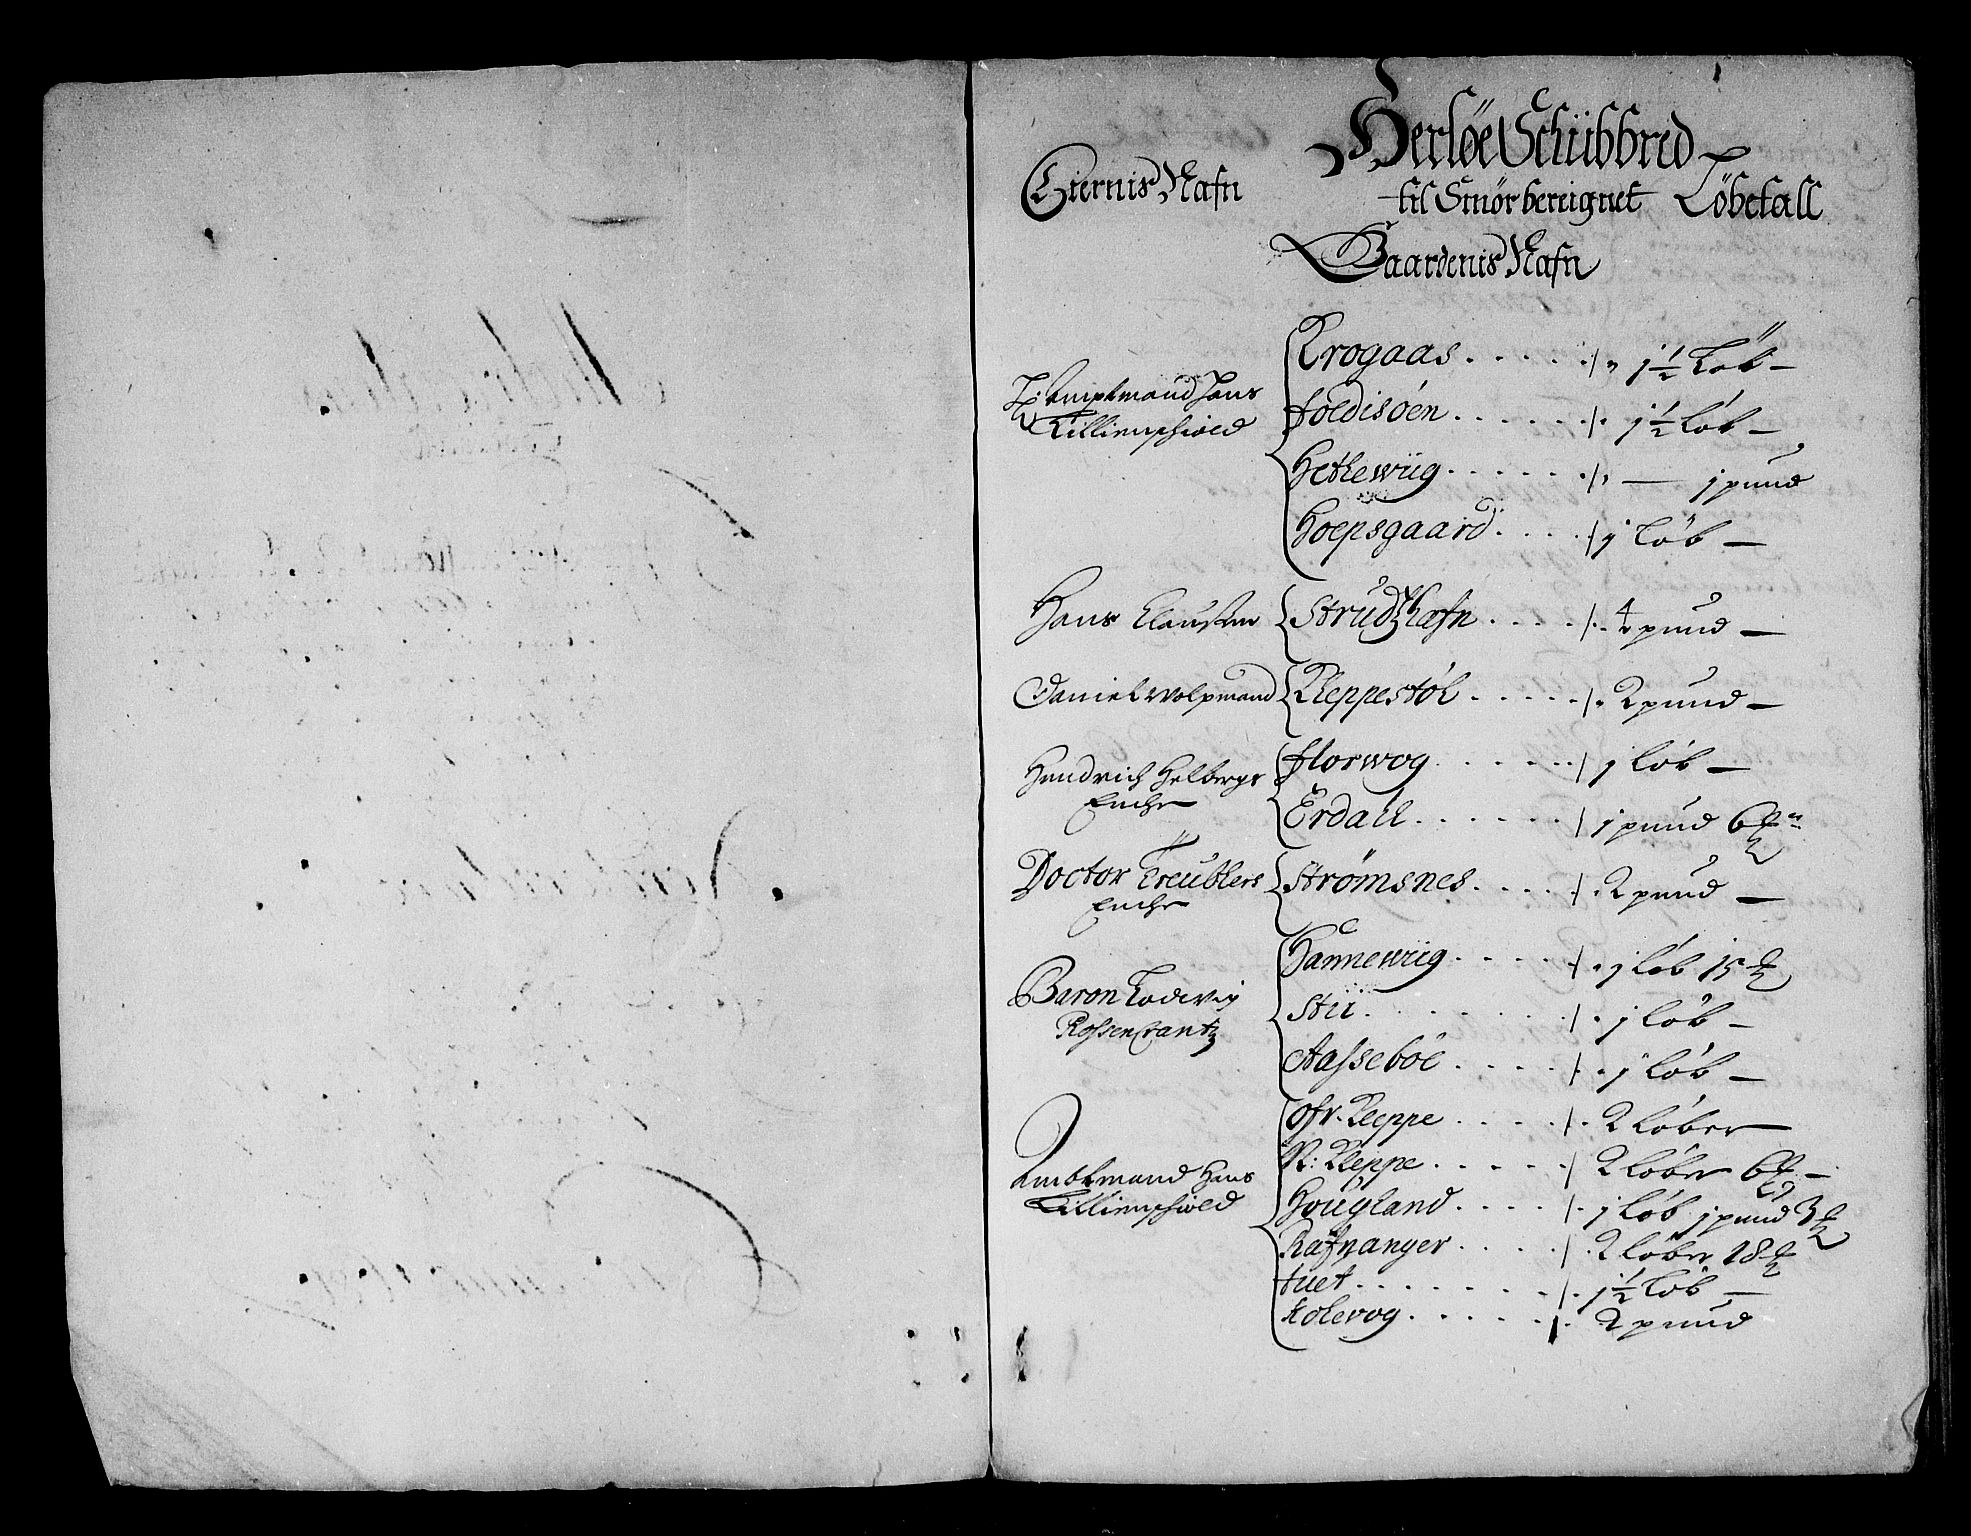 Herløe Schibbred
Eiernis Nafn
til Smør bereignet Löbetall
Gaardenis Nafn
Krogaas . . . . . 1½ Löb —
H: Amptmand Hans
Foldisöen . . . . . . 1½ löb —
Lillienschiold
Hetlewiig . . . . . . — 1 pund
Hoepsgaard . . . . 1 Löb —
Hans Claussen Strudzhafn . . . . 4 pund —
Daniel Wolpmand Kleppestöl . . . . . 2 pund —
Hendrich Helbergs Florwog . . . . . . 1 löb —
Enche
Erdall . . . . . . 1 pund 6 ℔
Doctor Kreüblers Strømsnes . . . . 2 pund —
Enche
Hannewiig . . . . 1 löb 15 ℔
Baron Lodwig
Stii . . . . . . . . 1 löb —
RossenCrantz
Aasseböe . . . . 1 löb —
Ofr. Kleppe . . . . 2 löber
N: Kleppe . . . . . 2 löber 6 ℔ —
Ambtmand Hans
Hougland . . . . 1 löb 1 pund 3 ℔
Lillienschiold
Rafnanger . . . . 2 löber 18 ℔
Tuet . . . . . . . . 1½ Löb —
Kolevog . . . . . . 2 pund